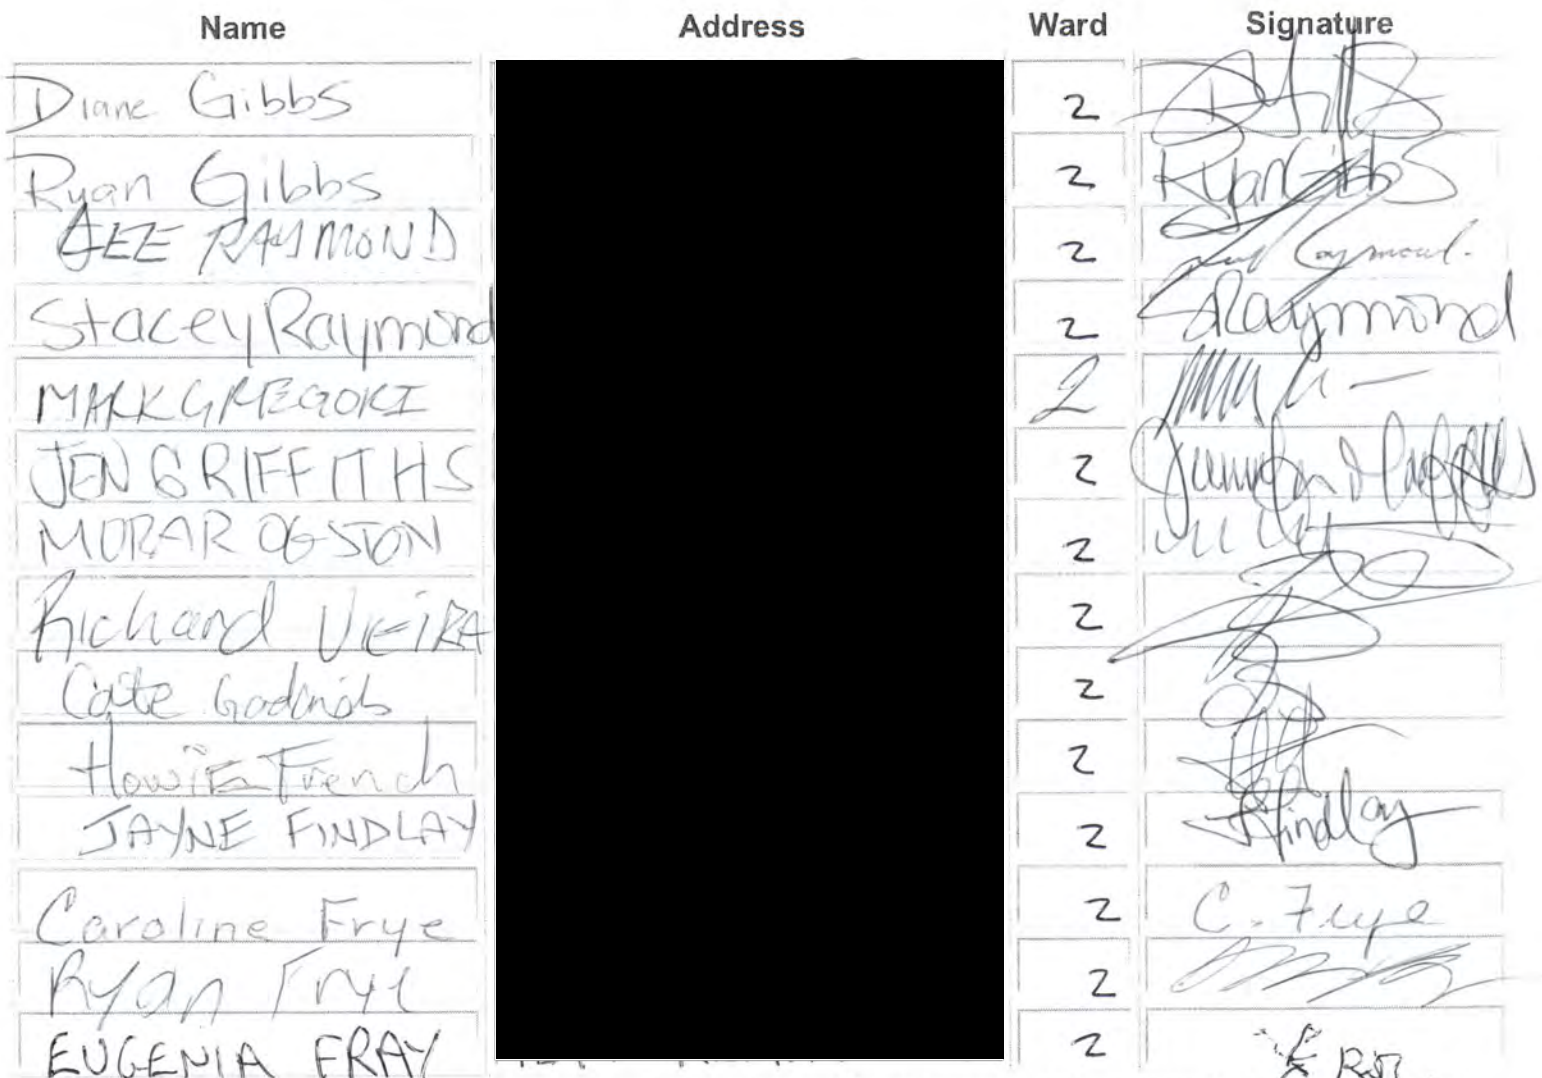 Name Address Ward Signature
Diane Gibbs 2
Ryan Gibbs 2 Ryan Gibbs
LEE RAYMOND 2 Raymond.
Stacey Raymond 2 SRaymond
MARK GREGORI 2
JEN GRIFFITHS 2
MORAR OGSTON 2
Richard VIEIRA 2
Cate 2
Howie French 2
JAYNE FINDLAY 2 JFindlay
Caroline Frye 2 C. Frye
Ryan Frye 2
EUGENIA FRAY 2